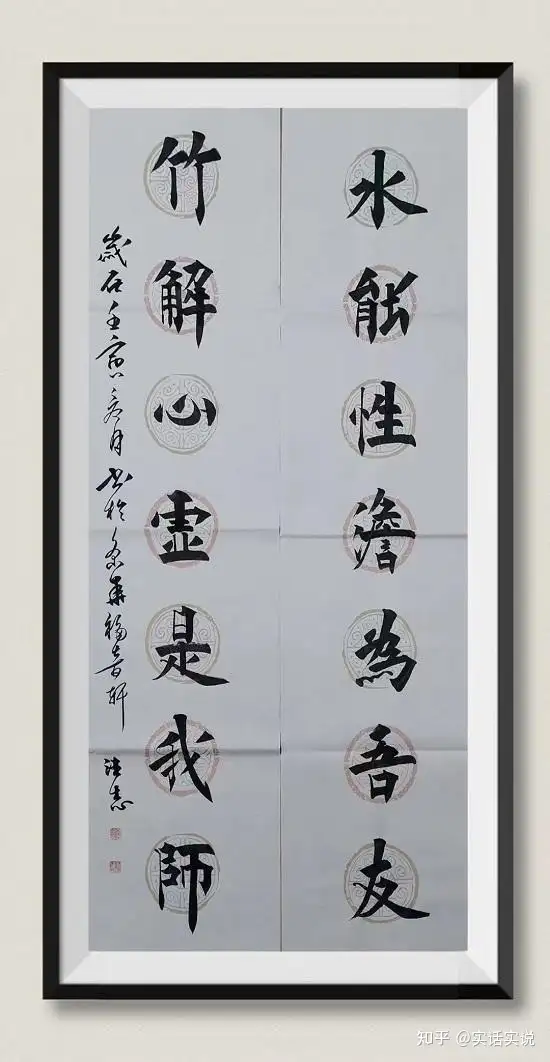 水能性澹為吾友
竹解心虛是我師
歲在壬寅月书於福音軒
知乎 @实话实说